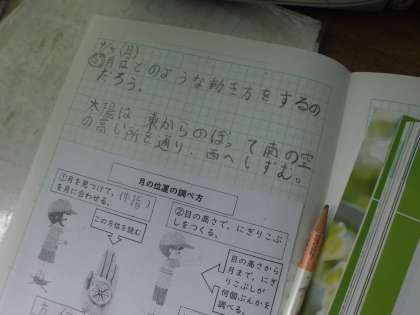 9/4(月)
月はどのような動き方をするの
だろう。
太陽は東からのぼって南の空
の高い所を通り、西へしずむ。
月の位置の調べ方
①月を見つけて、(半指)
を月に合わせる。
この方位を読む
②目の高さで、にぎりこぶ
しをつくる。
目の高さから
月まで、にぎ
りこぶしが
何個ぶんかを
測る。